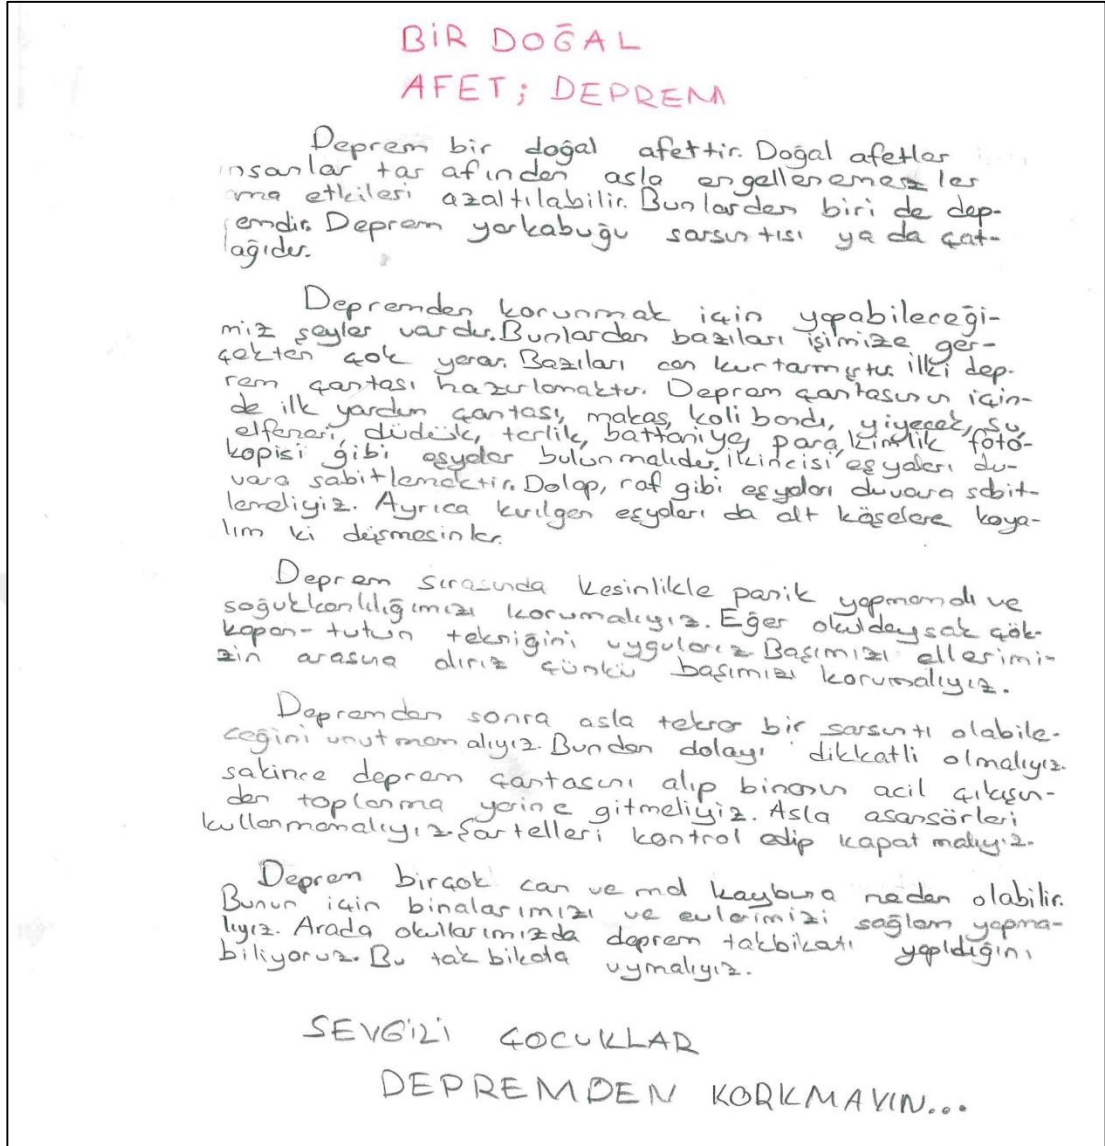 BİR DOĞAL
AFET; DEPREM
Deprem bir doğal afettir. Doğal afetler
insanlar tarafından asla engellenemezler
ma etkileri azaltılabilir. Bunlardan biri de dep-
emdir. Deprem yerkabuğu sarsıntısı ya da çat-
lağıdır.
Depremden korunmak için yapabileceği-
miz şeyler vardır. Bunlardan bazıları işimize ger-
çekten çok yarar. Bazıları can kurtarmıştır. İlki dep-
rem çantası hazırlamaktır. Deprem çantasının için-
de ilk yardım çantası, makas, koli bandı, yiyecek, su,
elfeneri, düdük, terlik, battaniye, para, kimlik foto-
kopisi gibi eşyalar bulunmalıdır. İkincisi eşyaları du-
vara sabitlemektir. Dolap, raf gibi eşyaları duvara sabit-
lemeliyiz. Ayrıca kırılgan eşyaları da alt köşelere koya-
lım ki düşmesinler.
Deprem sırasında kesinlikle panik yapmamalı ve
soğukkanlılığımızı korumalıyız. Eğer okuldaysak çök-
kapan-tutun tekniğini uygularız. Başımızı ellerimi-
zin arasına alırız çünkü başımızı korumalıyız.
Depremden sonra asla tekrar bir sarsıntı olabile-
ceğini unutmamalıyız. Bundan dolayı dikkatli olmalıyız.
sakince deprem çantasını alıp binanın acil çıkışın-
dan toplanma yerine gitmeliyiz. Asla asansörleri
kullanmamalıyız. Şartelleri kontrol edip kapatmalıyız.
Deprem birçok can ve mal kaybına neden olabilir.
Bunun için binalarımızı ve evlerimizi sağlam yapma-
lıyız. Arada okullarımızda deprem takbikatı yapıldığını
biliyoruz. Bu takbikata uymalıyız.
SEVGİLİ ÇOCUKLAR
DEPREMDEN KORKMAYIN...